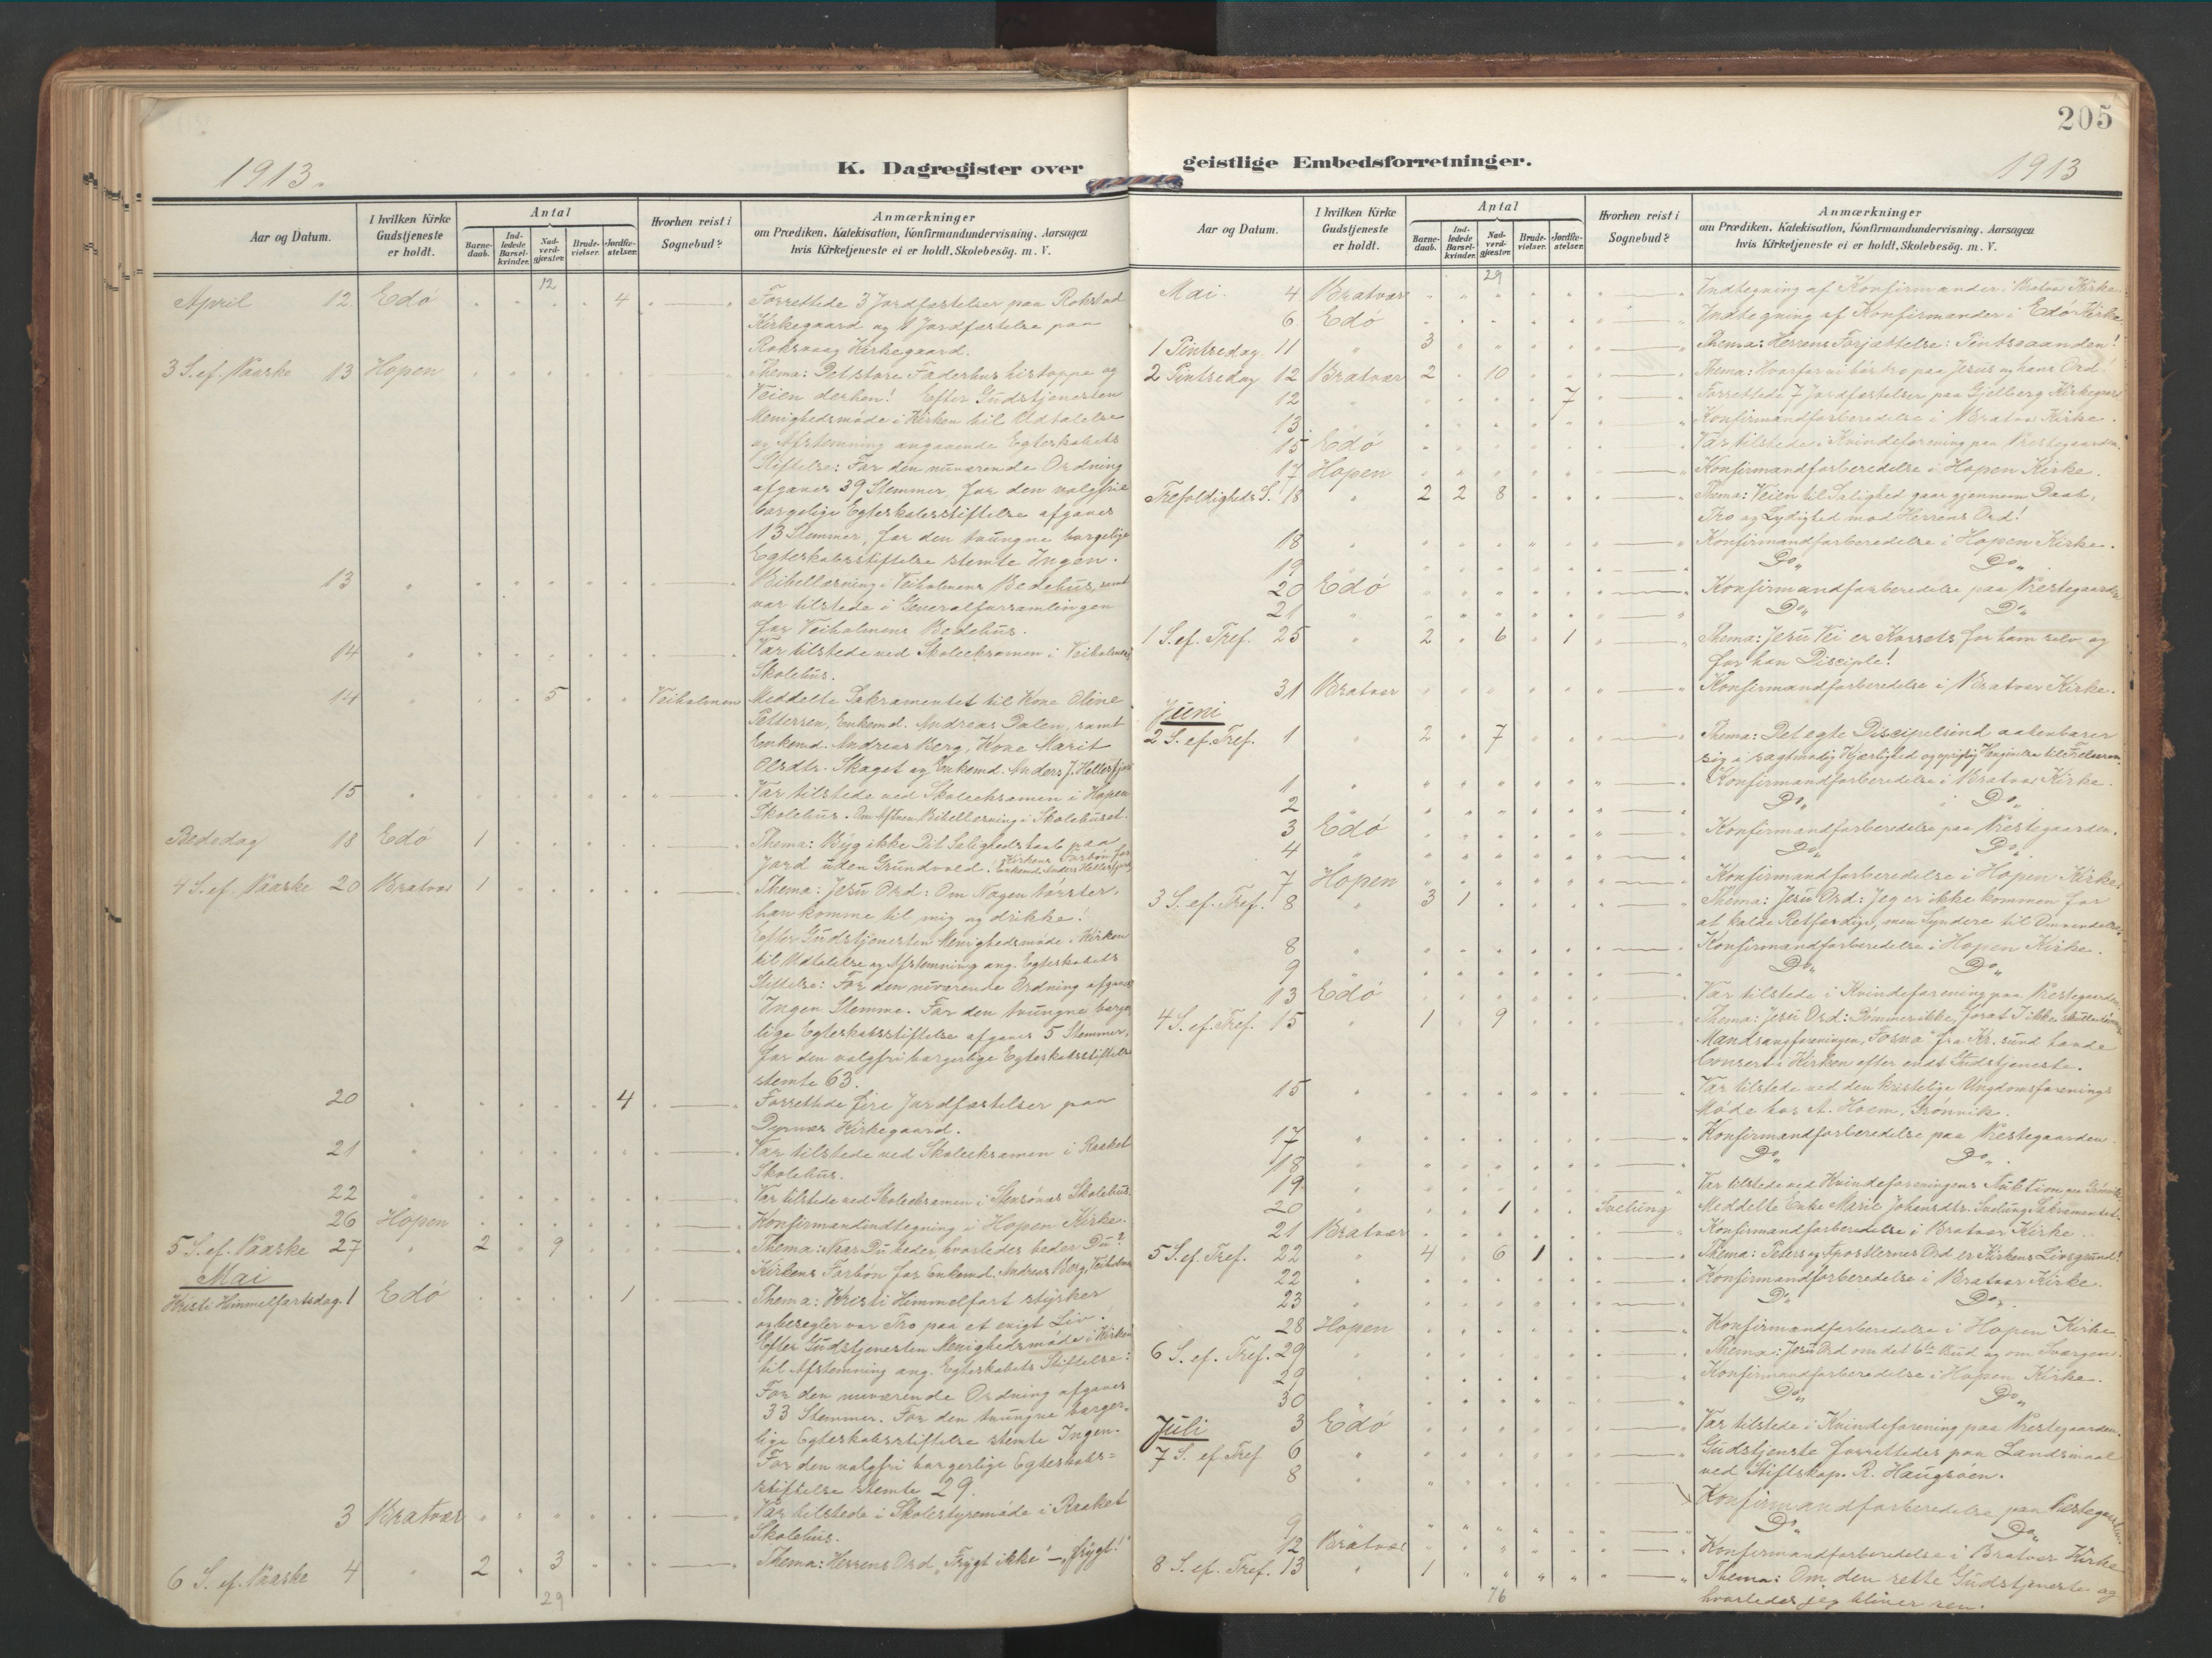 1913.
K. Dagregister over
Aar og Datum.
I hvilken Kirke Gudstjeneste er holdt.
Antal
Barne-daab.
Ind-ledede Barsel-kvinder.
Nad-verd-gjæster.
Brude-vielser.
Jordfæ-stelser.
Hvorhen reist i Sognebud?
Anmærkninger
om Prædiken. Katekisation, Konfirmandundervisning. Aarsagen
hvis Kirketjeneste ei er holdt. Skolebesög. m. V.
12
April 12. Edö 4 Forrettede 3 Jordfæstelser paa Rokstad
Kirkegaard og 1 Jordfæstelse paa
Roksvaag Kirkegaard.
3 S. ef. Paaske 13 Hopen Thema: Det store Faderhus histoppe og
Veien derhen! Efter Gudstjenesten
Menighedsmöde i Kirken til Udtalelse
og Afstemning angaaende Egteskabets
Stiftelse: For den nuværende Ordning
afgaves 39 Stemmer, for den valgfrie
borgelige Egteskabsstiftelse afgaves
13 Stemmer, for den tvungne borgelige
Egteskabsstiftelse stemte Ingen.
13 " Bibellæsning i Veiholmens Bedehus, samt
var tilstede i Generalforsamlingen
for Veiholmens Bedehus.
14 Var tilstede ved Skoleeksamen i Veiholmens
Skolehus.
14 " 5 Veiholmen Meddelte Sakramentet til Kone Oline
Pettersen, Enkemd. Andreas Dalen, samt
Enkemd. Andreas Berg, Kone Marit
Olsdtr. Skaget og Enkemd. Anders J. Hellesfjord
15 " Var tilstede ved Skoleeksamen i Hopen
Skolehus. Om Aftenen Bibellæsning i Skolehuset.
Bededag 18 Edö 1 Thema: Byg ikke Dit Salighedshaab paa
Jord uden Grundvold! Kirkens Forbön for
Enkemd. Anders Hellesfjord
4 S. ef. Paaske 20 Bratvær 1 Thema: Jesu Ord: Om Nogen törster,
han komme til mig og drikke!
Efter Gudstjenesten Menighedsmöde i Kirken
til Udtalelse og Afstemning ang. Egteskabets
Stiftelse: For den nuværende Ordning afgaves
Ingen Stemme. For den tvungne borger
lige Egteskabsstiftelse afgaves 5 Stemmer,
for den valgfri borgerlige Egteskabsstiftelse
stemte 63.
20 " 4 Forrettede fire Jordfæstelser paa
Dyrnæs Kirkegaard.
21 " Var tilstede ved Skoleeksamen i Raaket
Skolehus.
22 " Var tilstede ved Skoleeksamen i Stensönæs Skolehus.
26 Hopen Konfirmandindtegning i Hopen Kirke.
5 S. ef. Paaske 27 " 2 9 Thema: Naar Du beder, hvorledes beder Du?
Kirkens Forbön for Enkemd. Andreas Berg, Veiholmen
Mai
Kristi Himmelfartsdag. 1 Edö 1 Thema: Kristi Himmelfart styrker
og besegler vor Tro paa et evigt Liv!
Efter Gudstjenesten Menighedsmöde i Kirken
til Afstemning ang. Egteskabets Stiftelse:
For den nuværende Ordning afgaves
33 Stemmer. For den tvungne borger-
lige Egteskabsstiftelse stemte Ingen.
For den valgfri borgerlige Egteskabs=
stiftelse stemte 29.
3 Bratvær Var tilstede i Skolestyremöde i Raaket
Skolehus.
6 S. ef. Paaske 4 " 2 3 Thema: Herrens Ord „Frygt ikke" – „frygt!"
29
205
geistlige Embedsforretninger.
1913
Aar og Datum.
I hvilken Kirke Gudstjeneste er holdt.
Antal
Barne-daab.
Ind-ledede Barsel-kvinder.
Nad-verd-gjæster.
Brude-vielser.
Jordfæ-stelser.
Hvorhen reist i Sognebud?
Anmærkninger
om Prædiken. Katekisation, Konfirmandundervisning. Aarsagen
hvis Kirketjeneste ei er holdt. Skolebesög. m. V.
29
Mai. 4 Bratvær Indtegning af Konfirmander i Bratvær Kirke.
6 Edö Indtegning af Konfirmander i Edö Kirke.
1 Pintsedag 11 " 3 Thema: Herrens Forjættelse: Pintseaanden!
2 Pintsedag 12 Bratvær 2 10 Thema: Hvorfor vi bör tro paa Jesus og hans Ord!
12 7 Forrettede 7 Jordfæstelser paa Gjelberg Kirkegaard
13 " Konfirmandforberedelse i Bratvær Kirke.
15 Edö Var tilstede i Kvindeforening paa Prestegaarden.
17 Hopen Konfirmandforberedelse i Hopen Kirke.
Trefoldigheds S. 18 " 2 2 8 Thema: Veien til Salighed gaar gjennem Daab,
Tro og Lydighed mod Herrens Ord!
18 " Konfirmandforberedelse i Hopen Kirke.
19 " Do„ Do„
20 Edö Konfirmandforberedelse paa Prestegaarden
21 " Do„ Do„
1 S. ef. Tref. 25 " 2 6 1 Thema: Jesu Vei er Korsets for ham selv og
for han Disciple!
31 Bratvær Konfirmandforberedelse i Bratvær Kirke.
Juni
2 S. ef. Tref. 1 " 2 7 Thema: Det egte Discipelsind aabenbarer
sig i sagtmodig Kjærlighed og oprigtig Hengivelse til Frelseren.
1 " Konfirmandforberedelse i Bratvær Kirke.
2 " Do„ Do„
3 Edö Konfirmandforberedelse paa Prestegaarden.
4 " Do„ Do„
7 Hopen Konfirmandforberedelse i Hopen Kirke.
3 S. ef. Tref. 8 " 3 1 Thema: Jesu Ord: Jeg er ikke kommen for
at kalde Retfærdige, men Syndere til Omvendelse.
8 " Konfirmandforberedelse i Hopen Kirke.
9 " Do„ Do„
13 Edö Var tilstede i Kvindeforening paa Prestegaarden.
4 S. ef. Tref. 15 " 1 9 Thema: Jesu Ord: Dömmer ikke, forat I ikke skulle dömmes
Mandsangforeningen „Fosna" fra Kr.sund havde
Consert i Kirken efter endt Gudstjeneste.
15 " Var tilstede ved den kristelige Ungdomsforenings
Möde hos A. Hoem, Grönnvik.
17 " Konfirmandforberedelse paa Prestegaarden.
18 " Do„ Do„
19 " Var tilstede ved Kvindeforeningens Auktion paa Grönnvik.
20 " 1 Svelung Meddelte Enke Marit Johansdtr. Svelung Sakramentet.
21 Bratvær Konfirmandforberedelse i Bratvær Kirke.
5 S. ef. Tref. 22 " 4 6 1 Thema: Peters og Apostlernes Ord er Kirkens Livsgrund!
22 " Konfirmandforberedelse i Bratvær Kirke.
23 " Do„ Do„
28 Hopen Konfirmandforberedelse i Hopen Kirke
6 S. ef. Tref. 29 " Thema: Jesu Ord om det 6te Bud og om Sværgen.
29 " Konfirmandforberedelse i Hopen Kirke.
30 " Do„ Do„
Juli 3 Edö Var tilstede i Kvindeforening paa Prestegaarden.
7 S. ef Tref 6 " Gudstjeneste forrettedes paa Landsmaal
ved Stiftskap. R. Haugsöen.
8 " Konfirmandforberedelse paa Prestegaarden
9 " Do„ Do„
12 Bratvær Konfirmandforberedelse i Bratvær Kirke
8 S. ef. Tref. 13 " 1 Thema: Om den rette Gudstjeneste og
hvorledes jeg bliver ren.
76